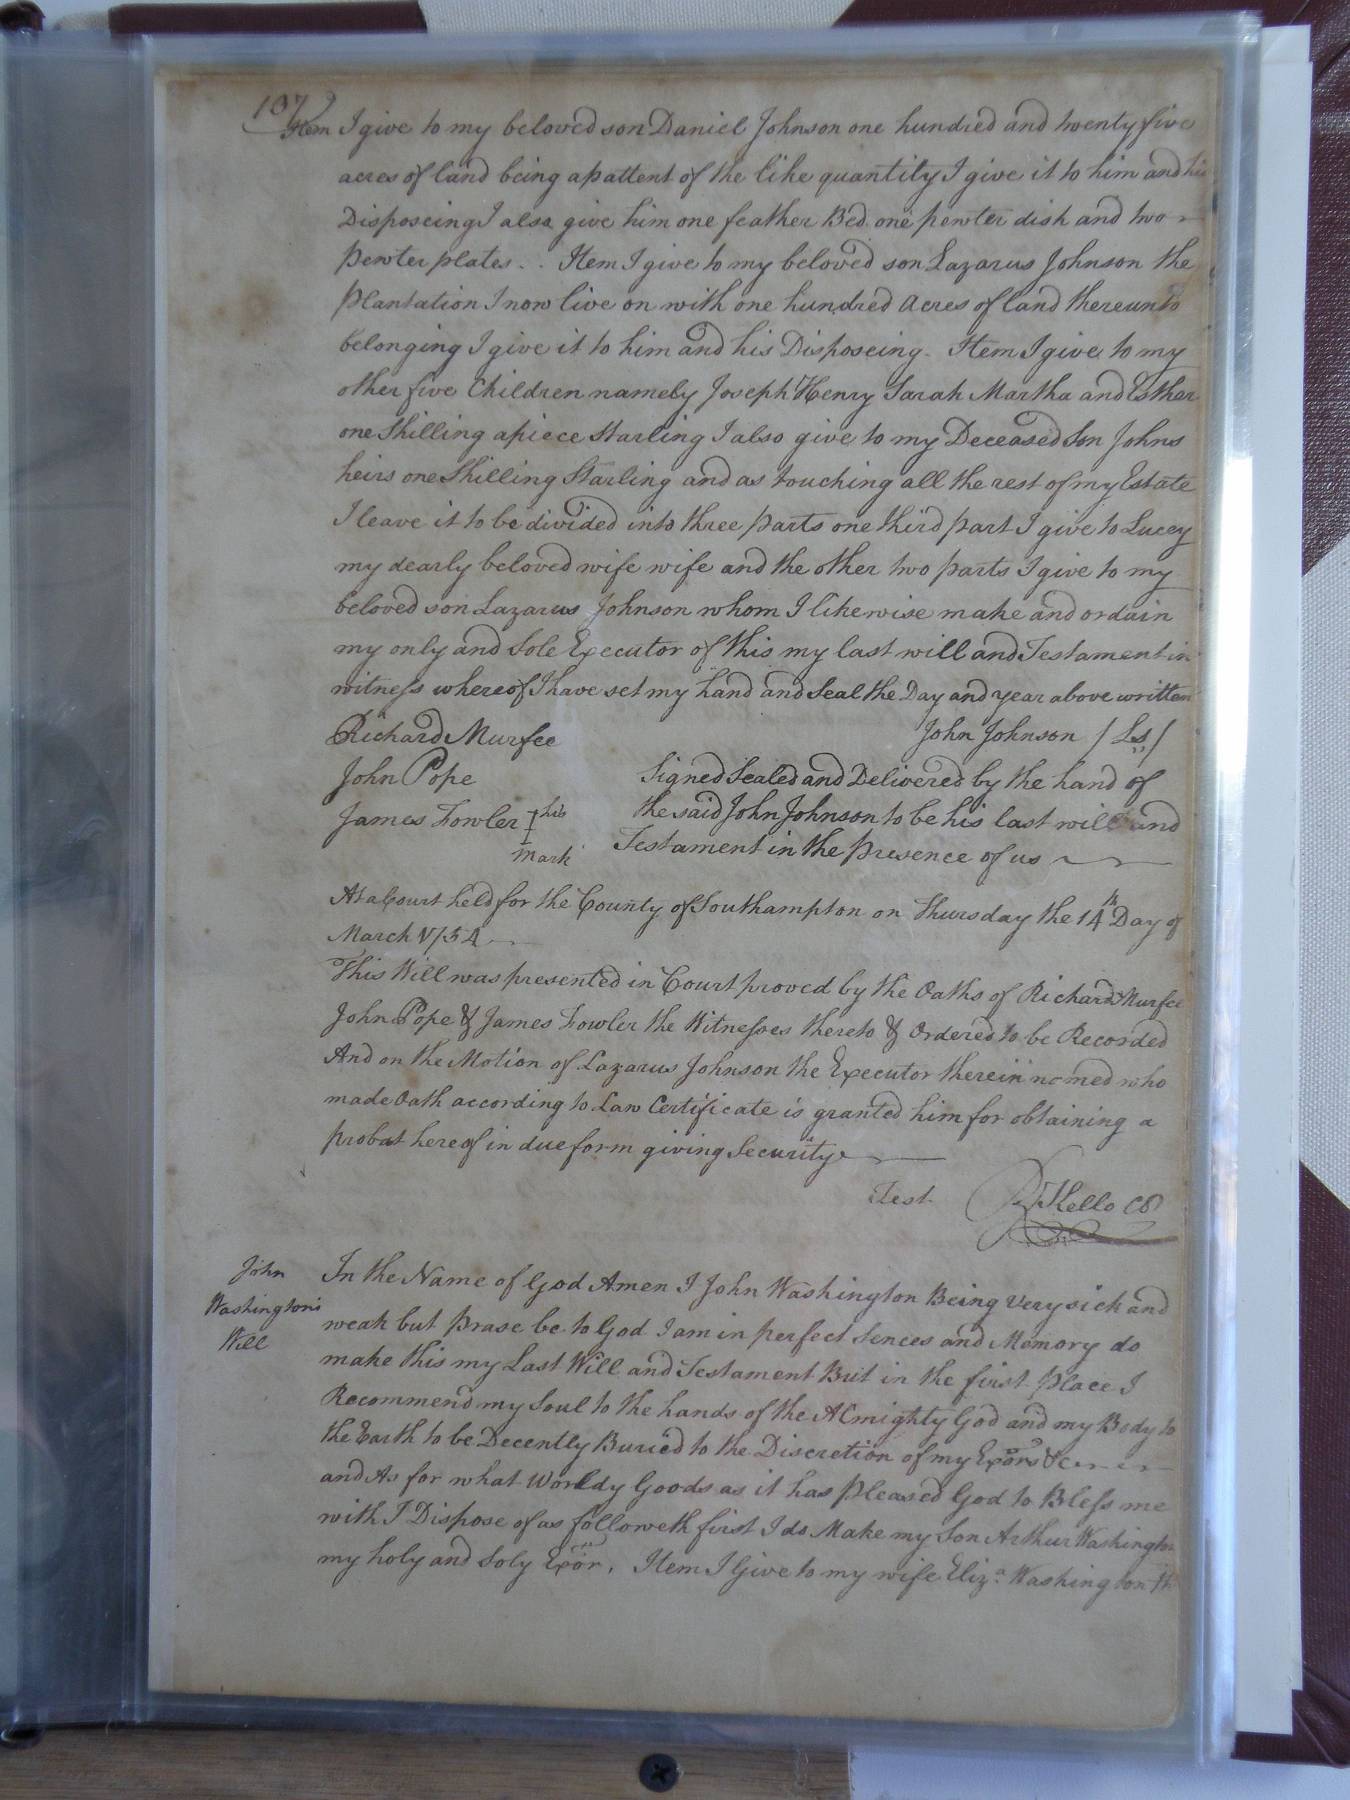 107
Item I give to my beloved son Daniel Johnson one hundred and twenty five
acres of land being a pattent of the like quantity I give it to him and his
Disposeing I also give him one feather Bed one pewter dish and two
pewter plates. . Item I give to my beloved son Lazarus Johnson the
plantation I now live on with one hundred acres of land thereunto
belonging I give it to him and his Disposeing. Item I give to my
other five Children namely Joseph Henry Sarah Martha and Esther
one Shilling apiece Starling I also give to my Deceased Son Johns
heirs one Shilling Starling and as touching all the rest of my Estate
I leave it to be divided into three parts one third part I give to Lucey
my dearly beloved wife wife and the other two parts I give to my
beloved son Lazarus Johnson whom I likewise make and ordain
my only and Sole Executor of this my last will and Testament in
witness whereof I have set my hand and Seal the Day and year above written
Richard Murfee John Johnson / Ls /
John Pope Signed Sealed and Delivered by the hand of
James Fowler I his the said John Johnson to be his last will and
mark Testament in the presence of us
At a Court held for the County of Southampton on Thursday the 14th Day of
March 1754
This Will was presented in Court proved by the Oaths of Richard Murfee
John Pope & James Fowler the Witnesses thereto & Ordered to be Recorded
And on the Motion of Lazarus Johnson the Executor therein named who
made Oath according to Law Certificate is granted him for obtaining a
probat hereof in due form giving Security
Test. R Kello CC
John In the Name of God Amen I John Washington Being Very sick and
Washington's weak but prase be to God I am in perfect Sences and Memory do
Will make this my Last Will and Testament But in the first place I
Recommend my Soul to the hands of the Almighty God and my Body to
the Earth to be Decently Buried to the Discretion of my Exors &c
and As for what Worldy Goods as it has pleased God to Bless me
with I Dispose of as followeth first I do Make my Son Arthur Washington
my holy and Soly Exor. Item I Give to my wife Eliza. Washington th